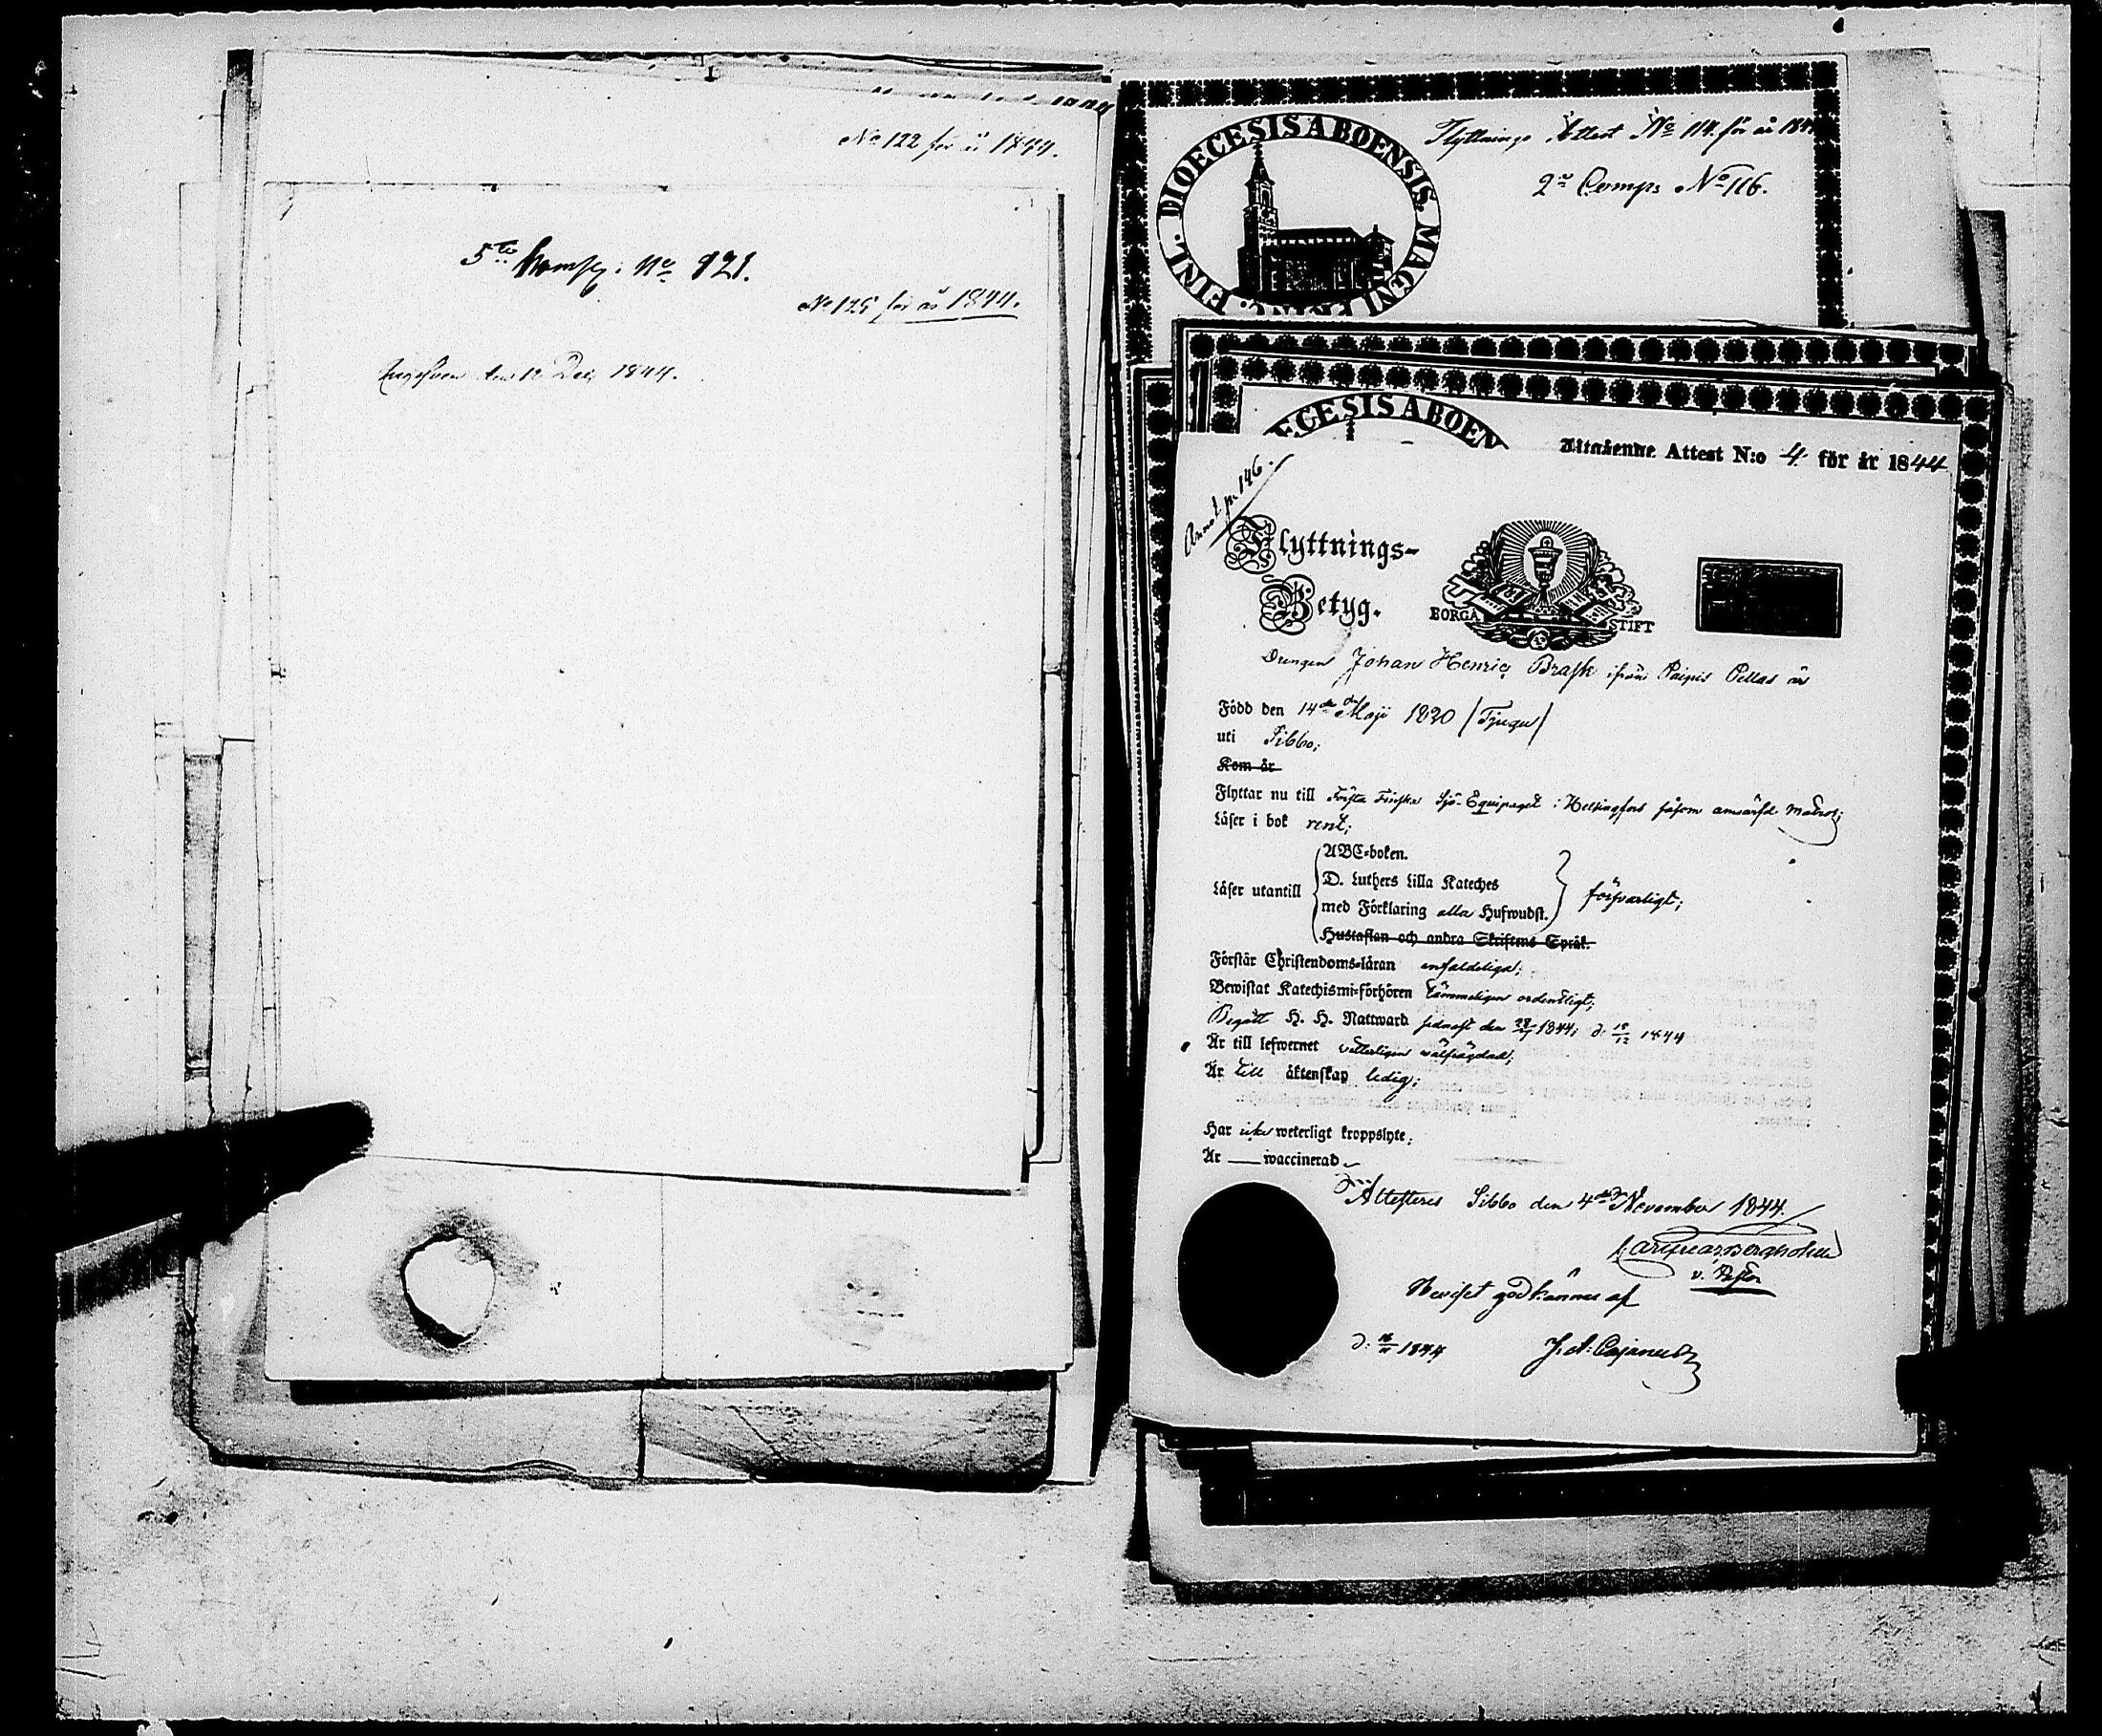 No 122 för år 1844.
5te Comp: No 121.
No 125 för år 1844.
den 12 Dec 1844.
DIOECESIS ABOENSIS. MAGNI PRINC. FINL.
Flyttnings Attest No 114. för år 1844
2a Comp: No 116.
ECESIS ABOEN
Utgående Attest N:o 4 för år 1844
Annot. p. 146.
Flyttnings-
Betyg.
BORGÅ STIFT
Drengen Johan Henric Brask ifrån Paipis Pellas är
Född den 14de Maji 1820 /Tjugu/
uti Sibbo;
Kom år
Flyttar nu till Första Finska Sjö-Equipaget i Helsingfors såsom anwärfd Matros;
Läser i bok rent;
ABC-boken.
D. Luthers Lilla Kateches
Läser utantill
med Förklaring alla Hufwudst.
försvarligt;
Hustaflan och andra Skriftens Språk.
Förstår Christendoms-läran enfaldeliga;
Bewistat Katechismi-förhören tämmeligen ordentligt;
Begått H. H. Nattward sednast den 1844; d. 15/12 1844
Är till lefwernet vetterligen wälfrägdad;
Är till äktenskap ledig;
Har icke weterligt kroppslyte;
Är — waccinerad
Attesteras Sibbo den 4de November 1844.
Bergholm
v. Pastor
Beviset godkännes af
d: 1844 J. A. Cajanus